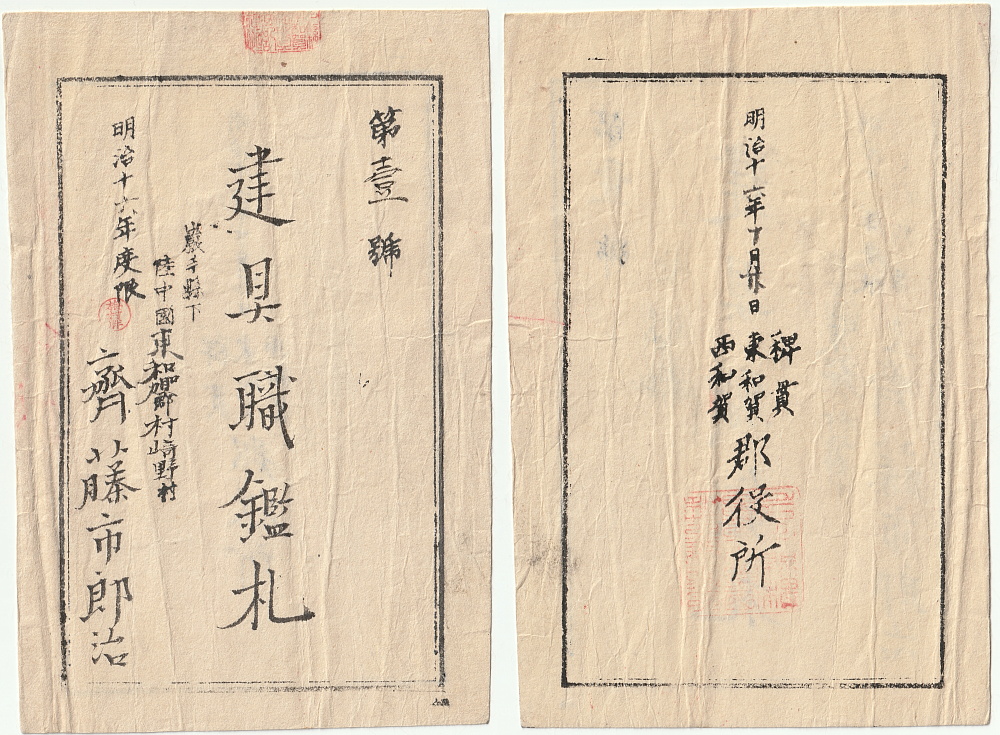 第壹號
建具職鑑札
巖手縣下
陸中國東和賀郡村崎野村
齊藤市郎治
明治十六年度限
明治十六年十月廿日
稗貫
東和賀
西和賀
郡役所